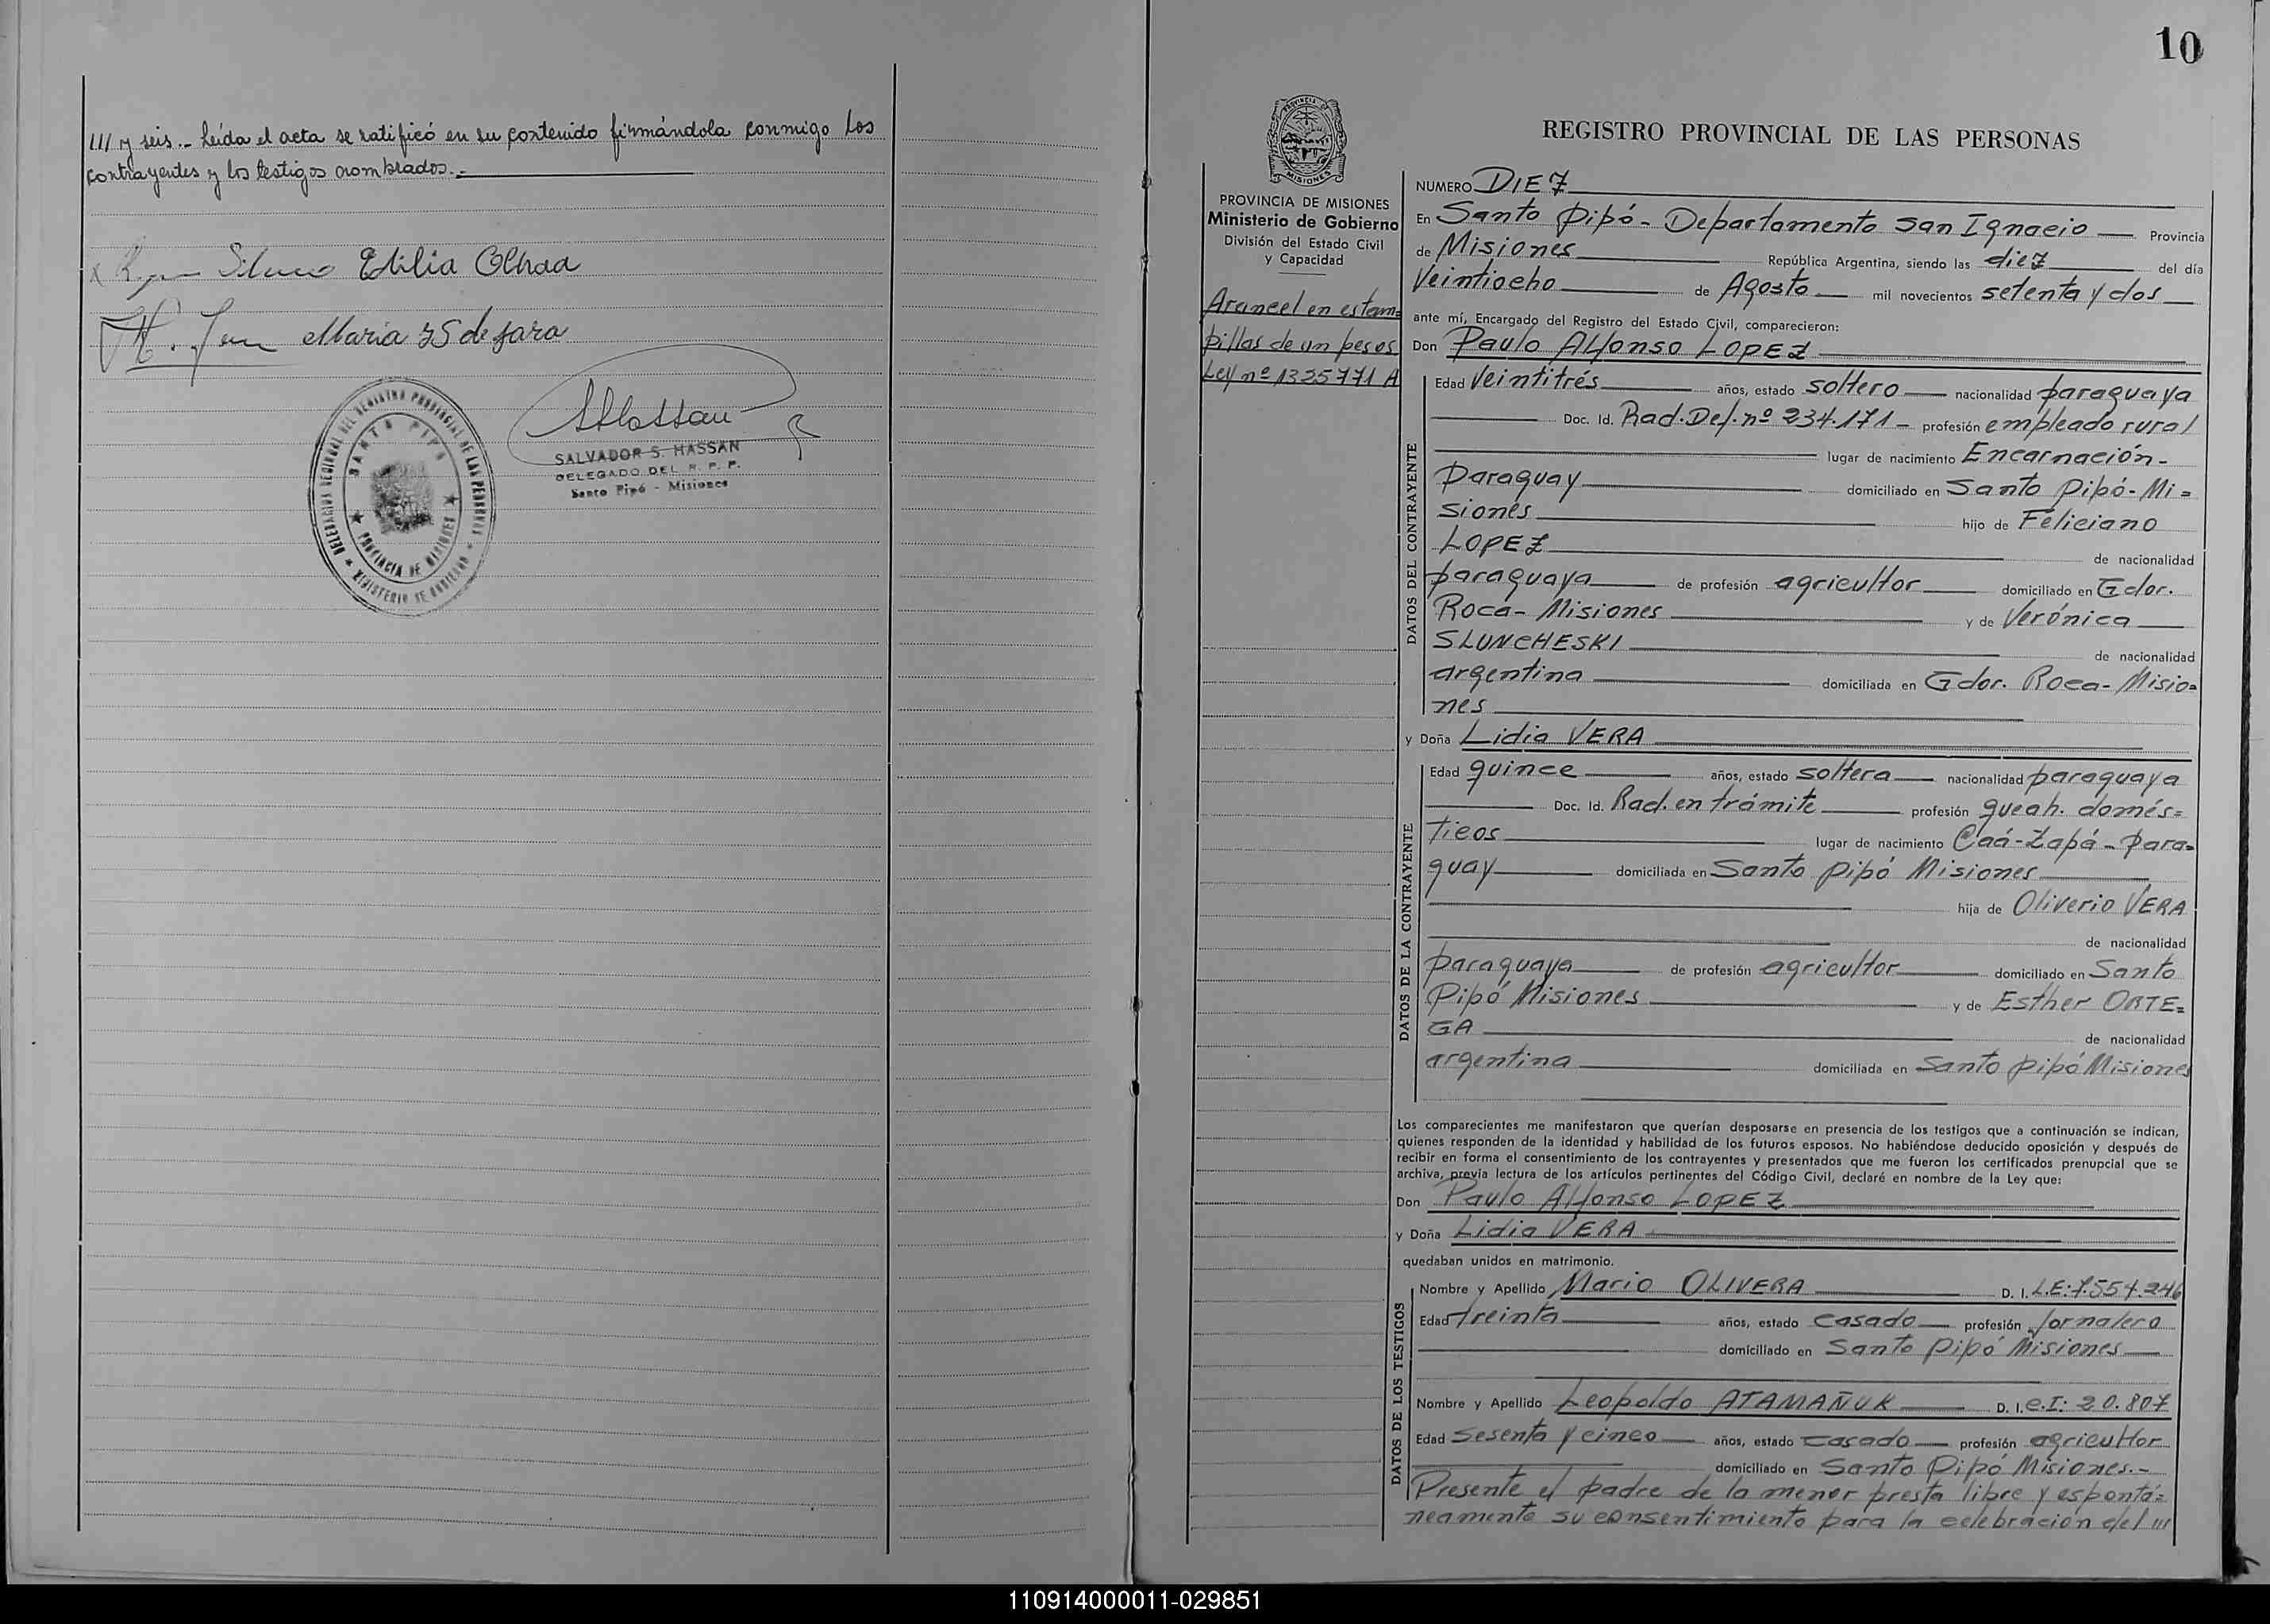 /// y seis.- Leída el acta se ratificó en su contenido firmándola conmigo los
contrayentes y los testigos nombrados.-
Maria
SALVADOR S. HASSAN
DELEGADO DEL R. P. P.
Santo Pipó - Misiones
SANTO PIPO
PROVINCIA DE MISIONES
MINISTERIO DE GOBIERNO
10
PROVINCIA DE
MISIONES
PROVINCIA DE MISIONES
Ministerio de Gobierno
División del Estado Civil
y Capacidad
Arancel en estam=
pillas de un pesos
Ley nº 1325771 A
REGISTRO PROVINCIAL DE LAS PERSONAS
NUMERO DIEZ
En Santo Pipó - Departamento San Ignacio Provincia
de Misiones República Argentina, siendo las diez del día
Veintiocho de Agosto mil novecientos setenta y dos
ante mí, Encargado del Registro del Estado Civil, comparecieron:
Don Paulo Alfonso LOPEZ
DATOS DEL CONTRAYENTE
Edad Veintitrés años, estado soltero nacionalidad paraguaya
Doc. Id. Rad. Def. nº 234.171 - profesión empleado rural
lugar de nacimiento Encarnación-
Paraguay domiciliado en Santo Pipó-Mi=
siones hijo de Feliciano
LOPEZ de nacionalidad
paraguaya de profesión agricultor domiciliado en Gdor.
Roca- Misiones y de Verónica
SLUNCHESKI de nacionalidad
argentina domiciliada en Gdor. Roca- Misio=
nes
y Doña Lidia VERA
DATOS DE LA CONTRAYENTE
Edad quince años, estado soltera nacionalidad paraguaya
Doc. Id. Rad. en trámite profesión queah. domés=
ticos lugar de nacimiento Caá-Zapá- Para=
guay domiciliada en Santo Pipó Misiones
hija de Oliverio VERA
de nacionalidad
paraguaya de profesión agricultor domiciliado en Santo
Pipó Misiones y de Esther ORTE=
GA de nacionalidad
argentina domiciliada en Santo Pipó Misiones
Los comparecientes me manifestaron que querían desposarse en presencia de los testigos que a continuación se indican,
quienes responden de la identidad y habilidad de los futuros esposos. No habiéndose deducido oposición y después de
recibir en forma el consentimiento de los contrayentes y presentados que me fueron los certificados prenupcial que se
archiva, previa lectura de los artículos pertinentes del Código Civil, declaré en nombre de la Ley que:
Don Paulo Alfonso LOPEZ
y Doña Lidia VERA
quedaban unidos en matrimonio.
DATOS DE LOS TESTIGOS
Nombre y Apellido Mario OLIVERA D. I. L.E: 7.554.246
Edad treinta años, estado casado profesión Jornalero
domiciliado en Santo Pipó Misiones
Nombre y Apellido Leopoldo ATAMAÑUK D. I. C.I: 20.807
Edad Sesenta y cinco años, estado casado profesión agricultor
domiciliado en Santo Pipó Misiones.-
Presente el padre de la menor presta libre y espontá=
neamente su consentimiento para la celebración del ///
110914000011-029851